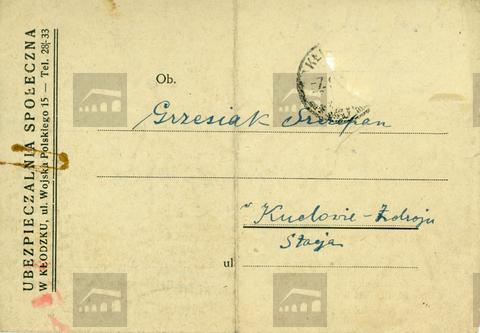 UBEZPIECZALNIA SPOŁECZNA
W KŁODZKU, ul. Wojska Polskiego 15 — Tel. 28-33
Ob.
Grzesiak Szczepan
w Kudowie-Zdroju
Stacja
ul.